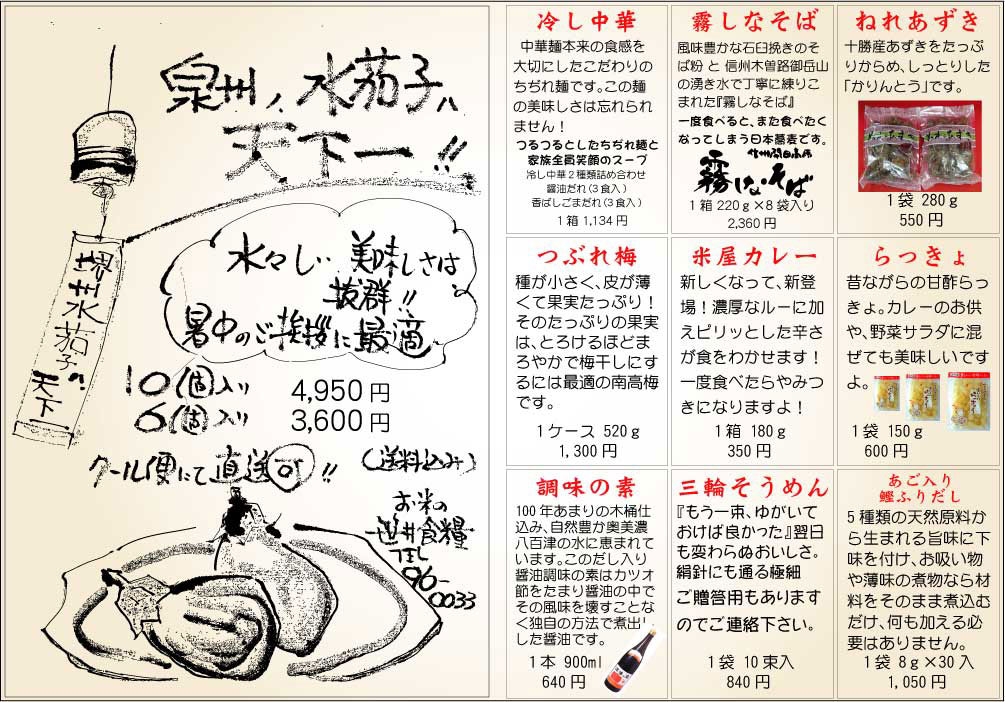 泉州ノ水茄子ハ
天下一!!
水々しい美味しさは
抜群!!
暑中のご挨拶に最適
10個入り 4,950円
6個入り 3,600円
クール便にて直送可!!
(送料込み)
お米の
TEL
0033
水茄子
天下
冷し中華
中華麺本来の食感を
大切にしたこだわりの
ちぢれ麺です。この麺
の美味しさは忘れられ
ません！
つるつるとしたちぢれ麺と
家族全員笑顔のスープ
冷し中華２種類詰め合わせ
醤油だれ(３食入)
香ばしごまだれ(３食入)
１箱 1,134円
霧しなそば
風味豊かな石臼挽きのそ
ば粉 と 信州木曽路御岳山
の湧き水で丁寧に練りこ
まれた『霧しなそば』
一度食べると、また食べたく
なってしまう日本蕎麦です。
霧しな・そば
１箱 220ｇ×８袋入り
2,360円
ねれあずき
十勝産あずきをたっぷ
りからめ、しっとりした
「かりんとう」です。
１袋 280ｇ
550円
つぶれ梅
種が小さく、皮が薄
くて果実たっぷり！
そのたっぷりの果実
は、とろけるほどま
ろやかで梅干しにす
るには最適の南高梅
です。
１ケース 520ｇ
1,300円
米屋カレー
新しくなって、新登
場！濃厚なルーに加
えピリッとした辛さ
が食をわかせます！
一度食べたらやみつ
きになりますよ！
１箱 180ｇ
350円
らっきょ
昔ながらの甘酢らっ
きょ。カレーのお供
や、野菜サラダに混
ぜても美味しいです
よ。
１袋 150ｇ
600円
調味の素
100年あまりの木桶仕
込み、自然豊か奥美濃
八百津の水に恵まれて
います。このだし入り
醤油調味の素はカツオ
節をたまり醤油の中で
その風味を壊すことな
く独自の方法で煮出し
した醤油です。
１本 900ml
640円
三輪そうめん
『もう一束、ゆがいて
おけば良かった』翌日
も変わらぬおいしさ。
絹針にも通る極細
ご贈答用もあります
のでご連絡下さい。
１袋 10束入
840円
あご入り
鰹ふりだし
５種類の天然原料か
ら生まれる旨味に下
味を付け、お吸い物
や薄味の煮物なら材
料をそのまま煮込む
だけ、何も加える必
要はありません。
１袋 8ｇ×30入
1,050円